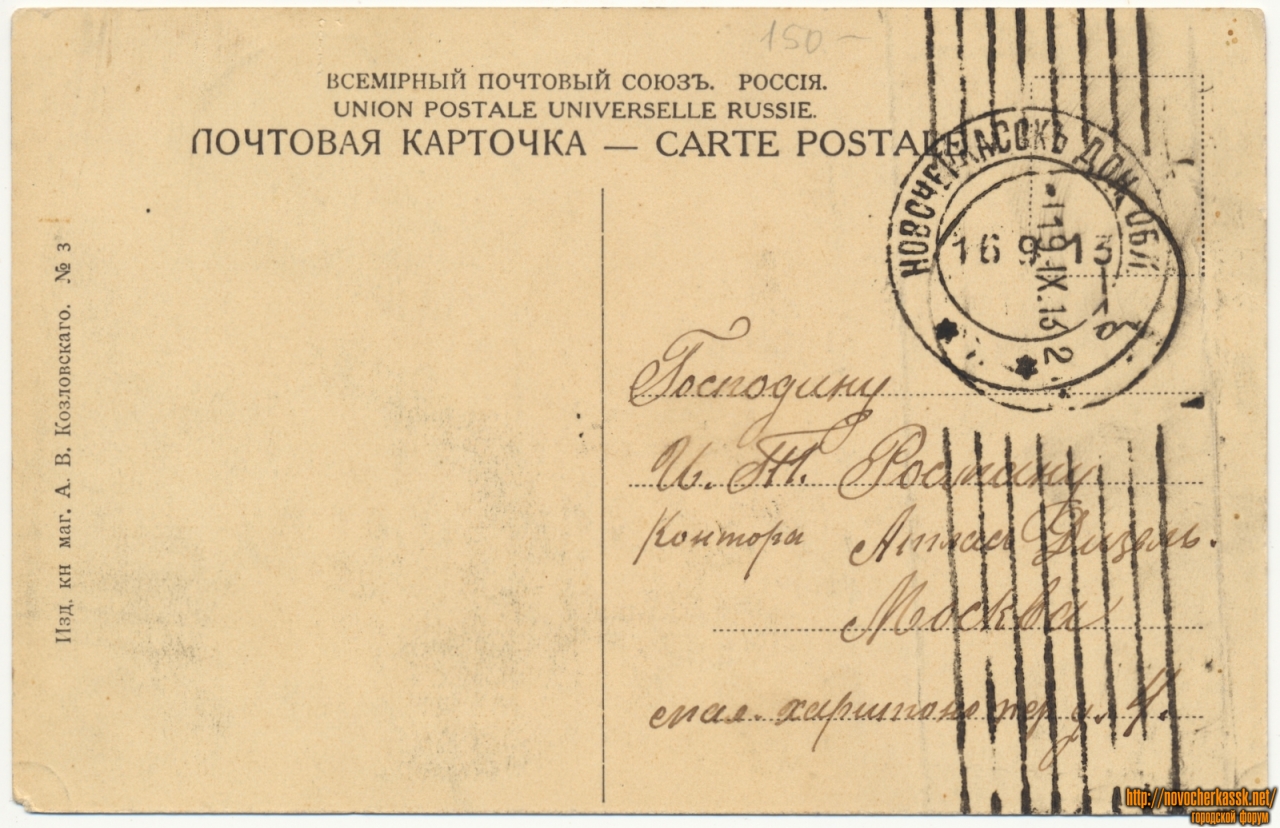 150 –
ВСЕМІРНЫЙ ПОЧТОВЫЙ СОЮЗЪ. РОССІЯ.
UNION POSTALE UNIVERSELLE RUSSIE.
ПОЧТОВАЯ КАРТОЧКА — CARTE POSTALE
НОВОЧЕРКАССКЪ ДОН. ОБЛ.
16 9 13
19.IX.13
2
Изд. кн маг. А. В. Козловскаго. № 3
Господину
И. Т.
Контора Атлас Дизель.
Москва
http://novocherkassk.net/
городской форум